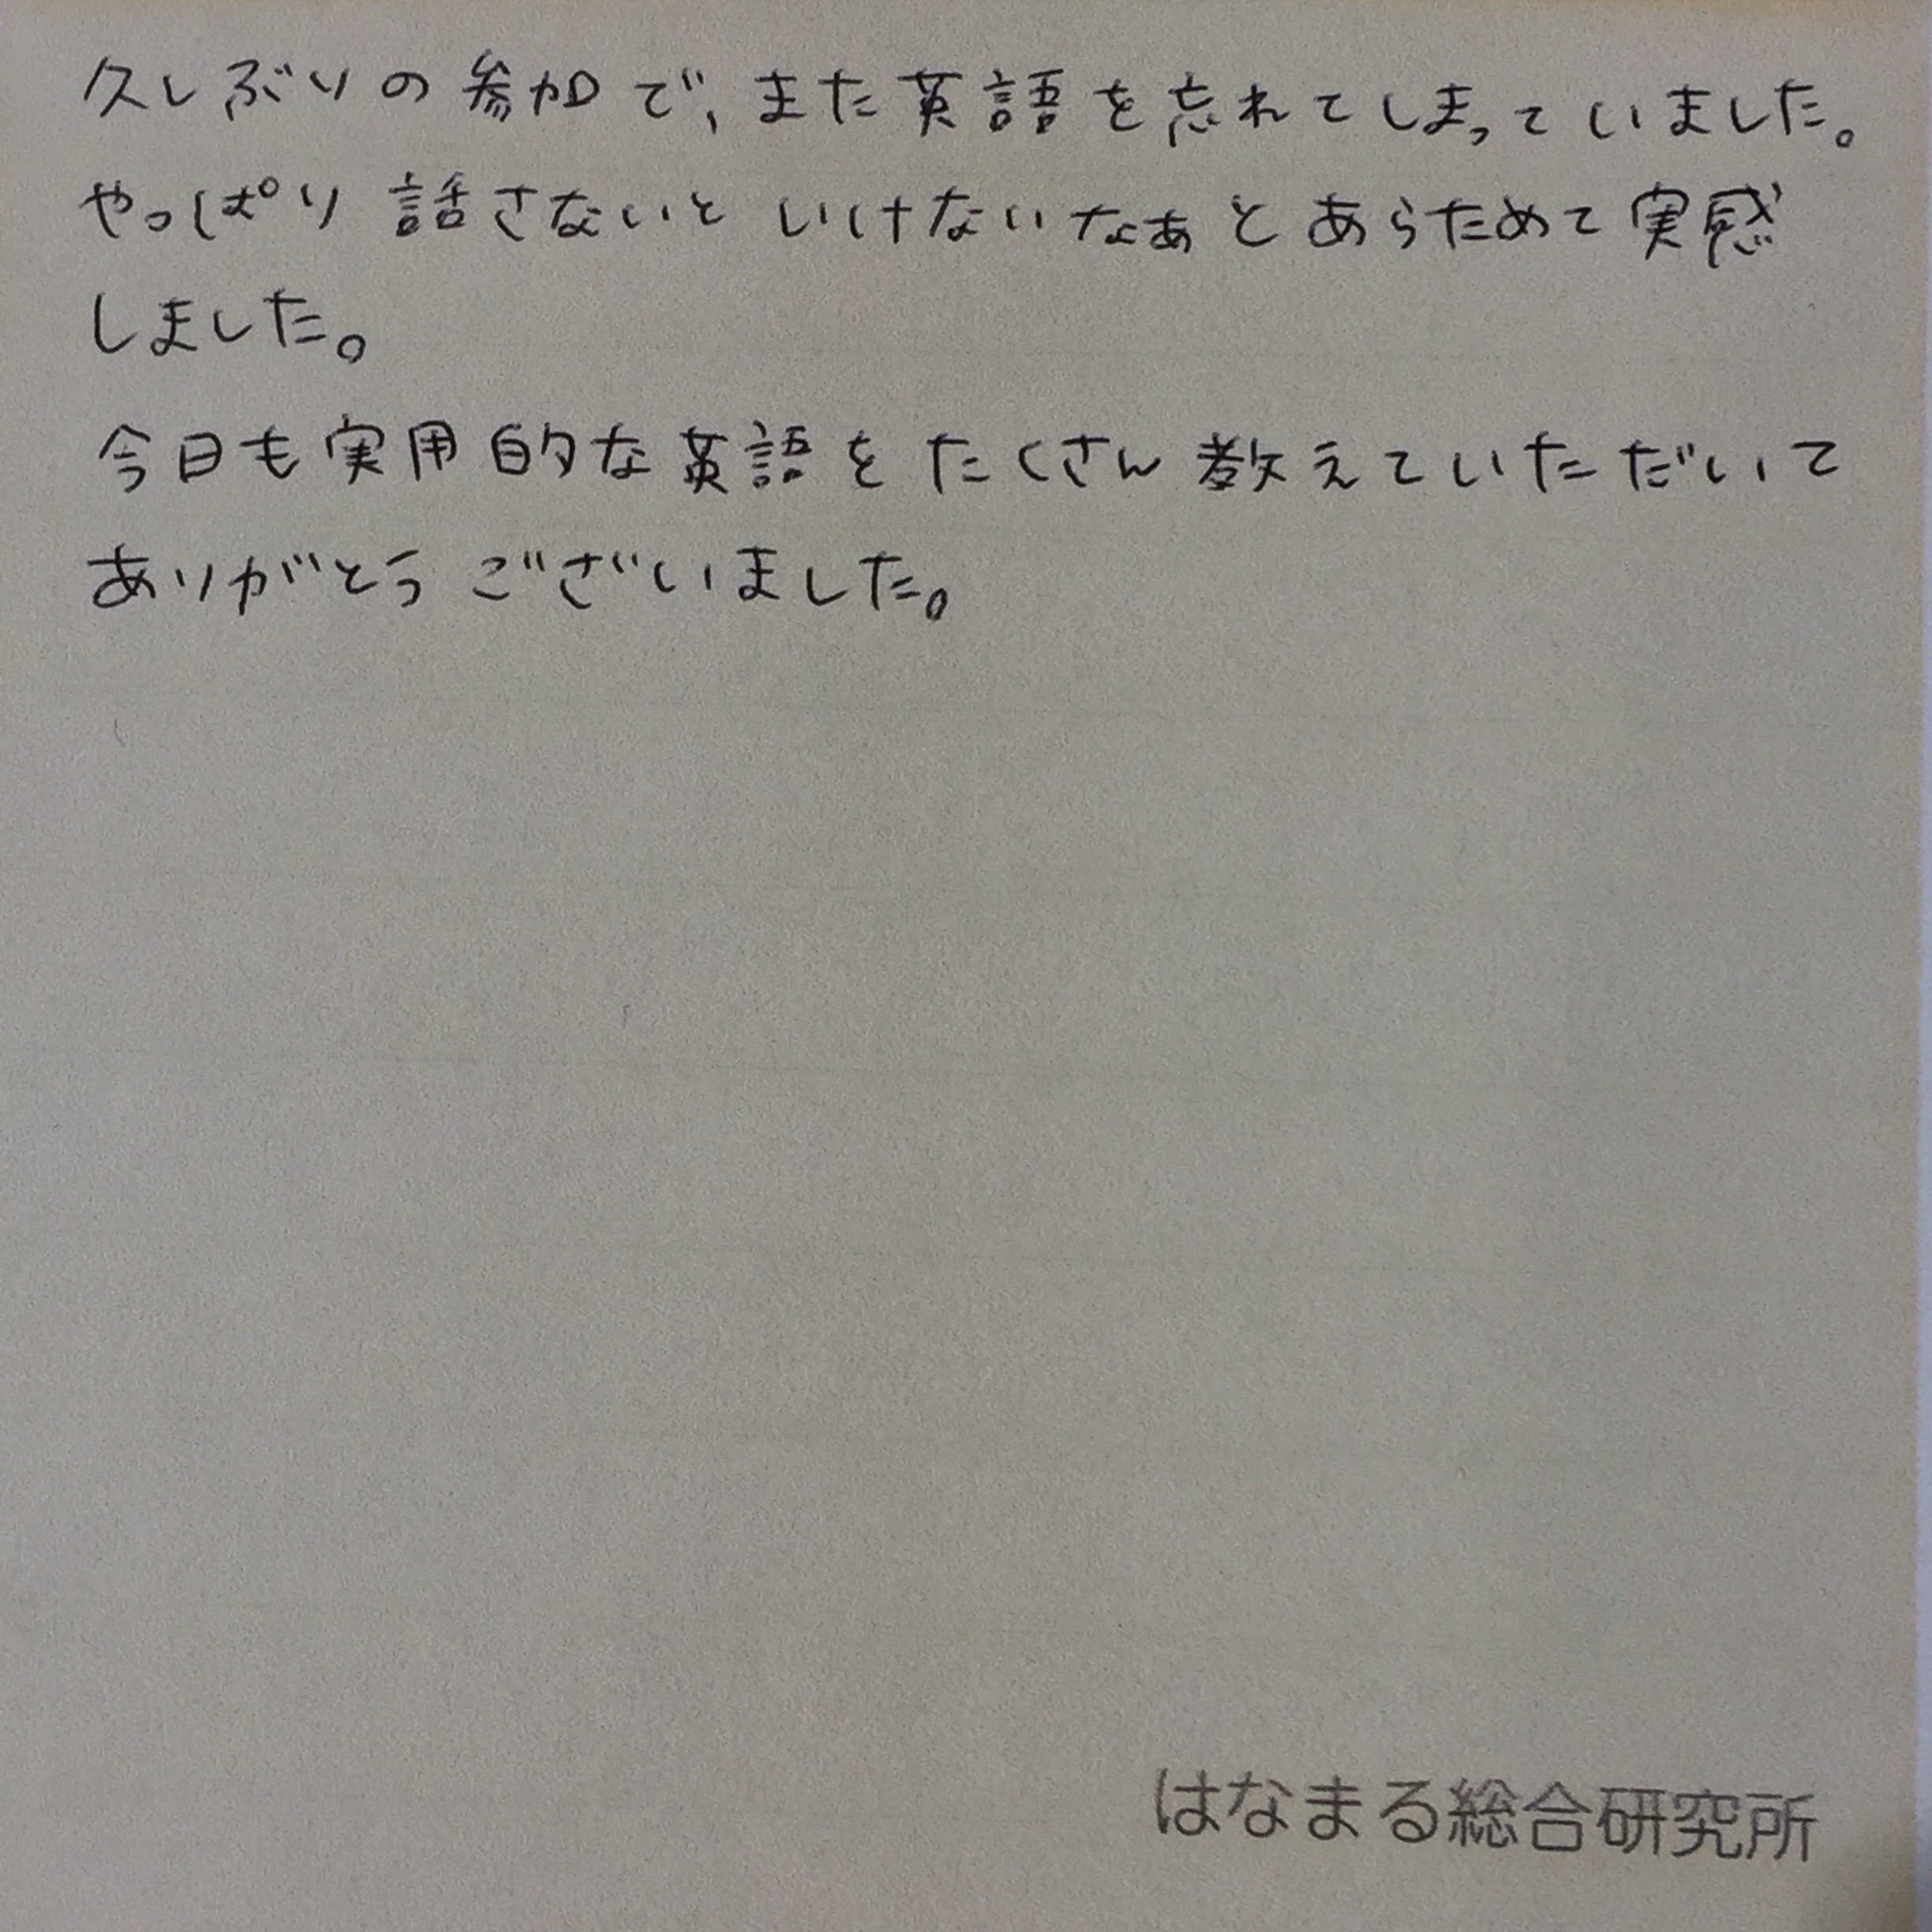 久しぶりの参加で、また英語を忘れてしまっていました。
やっぱり話さないといけないなぁとあらためて実感
しました。
今日も実用的な英語をたくさん教えていただいて
ありがとうございました。
はなまる総合研究所